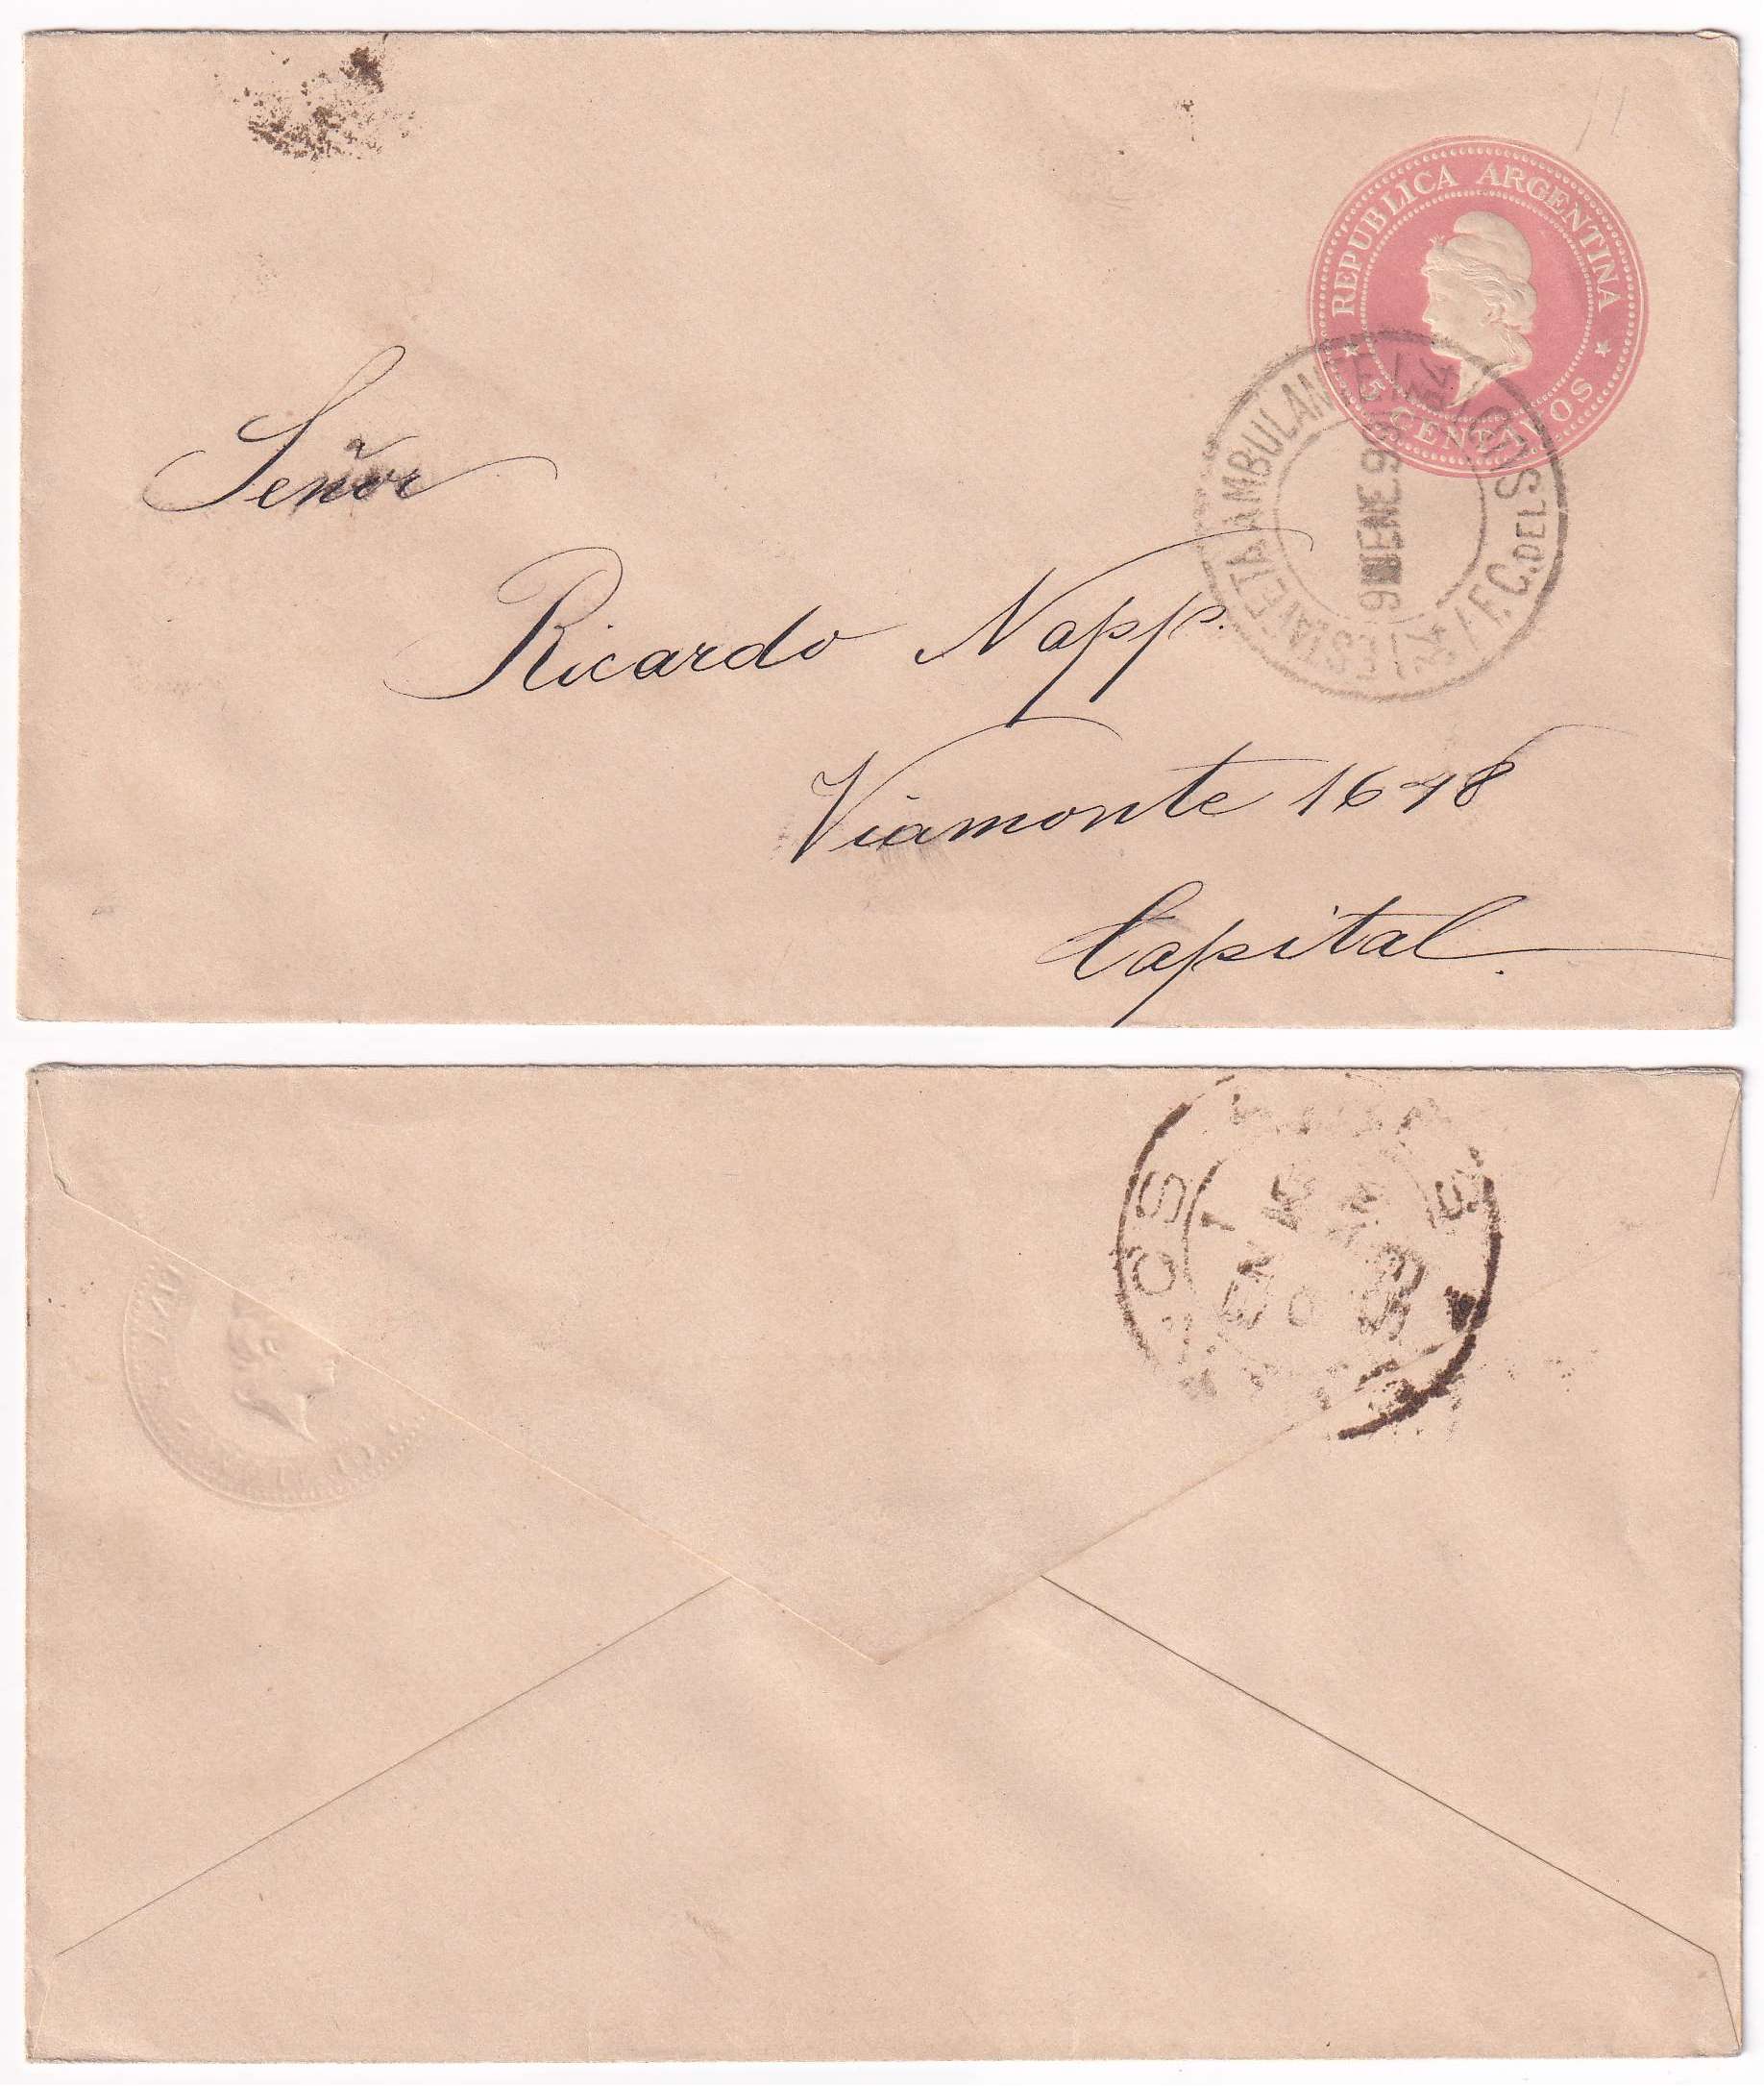 REPUBLICA ARGENTINA
5 CENTAVOS
ESTAFETA AMBULANTE
F.C. DEL SUD
ENE 9
Señor
Ricardo Napp.
Viamonte 1648
Capital.